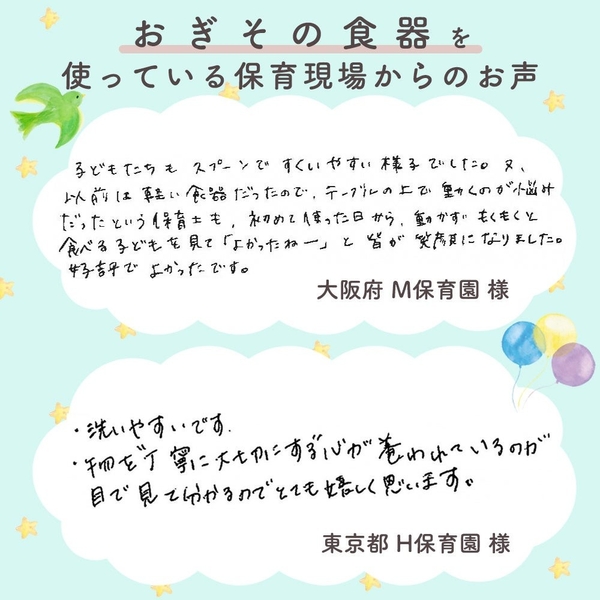 おぎその食器を
使っている保育現場からのお声
子どもたちも スプーンで すくいやすい 様子でした。又、
以前は 軽い 食器だったので、テーブルの上で 動くのが悩み
だったという保育士も、初めて使った日から、動かず もくもくと
食べる 子どもを見て「よかったねー」と 皆が 笑顔になりました。
好評で よかったです。
大阪府 M保育園 様
・洗いやすいです.
・物を丁寧に大切にする心が 養われているのが
目で見て分かるのでとても嬉しく思います。
東京都 H保育園 様